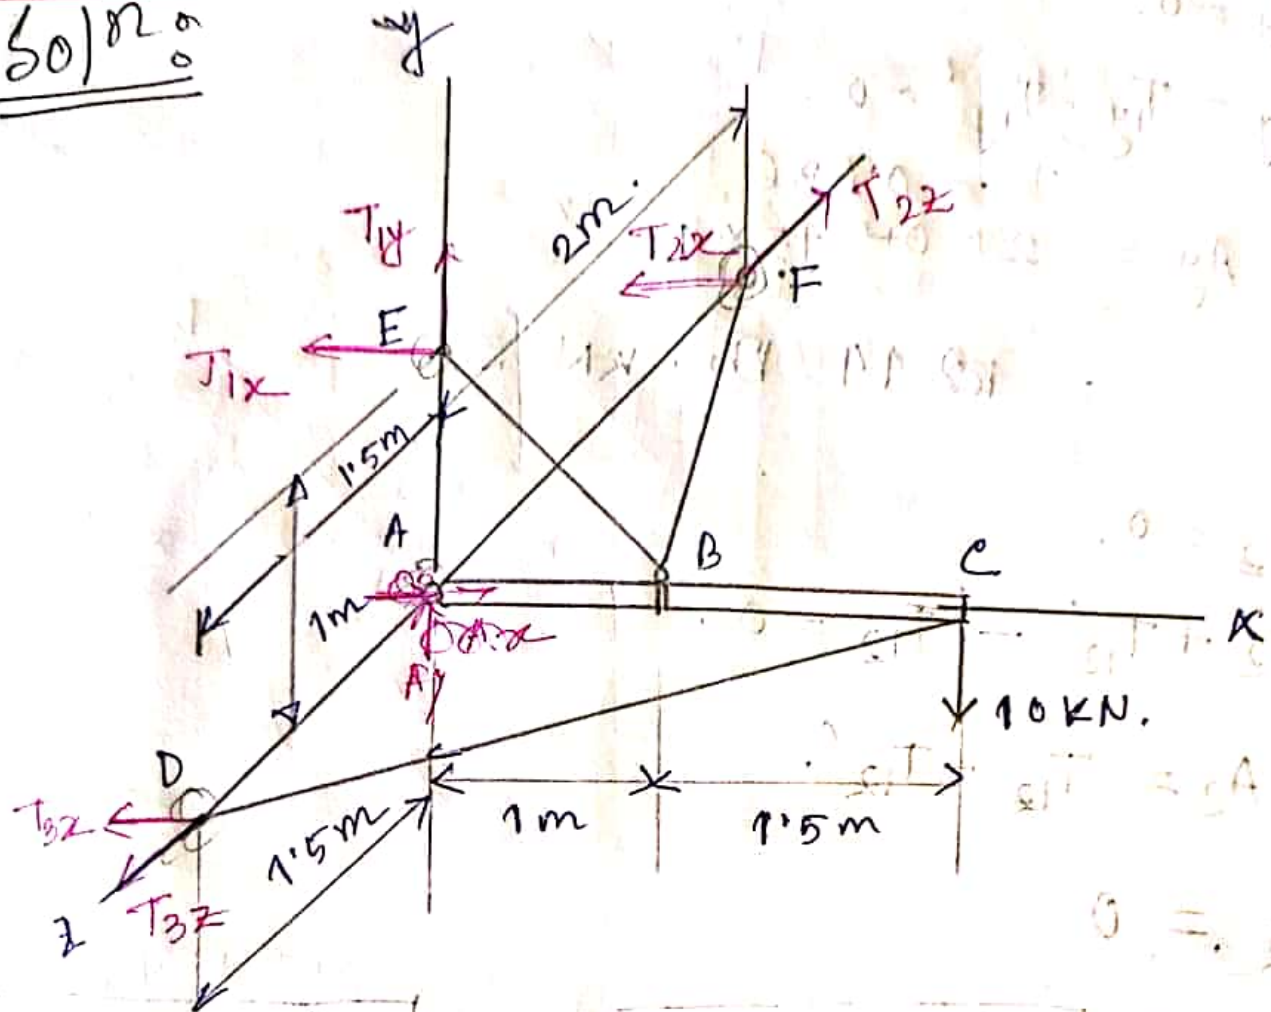 Sol n:
y
2m.
T1y
T2x
T2z
F
E
T1x
1.5m
A
B
C
1m
Ax
x
Ay
10 KN.
D
T3x
1.5m
1m
1.5m
T3z
z